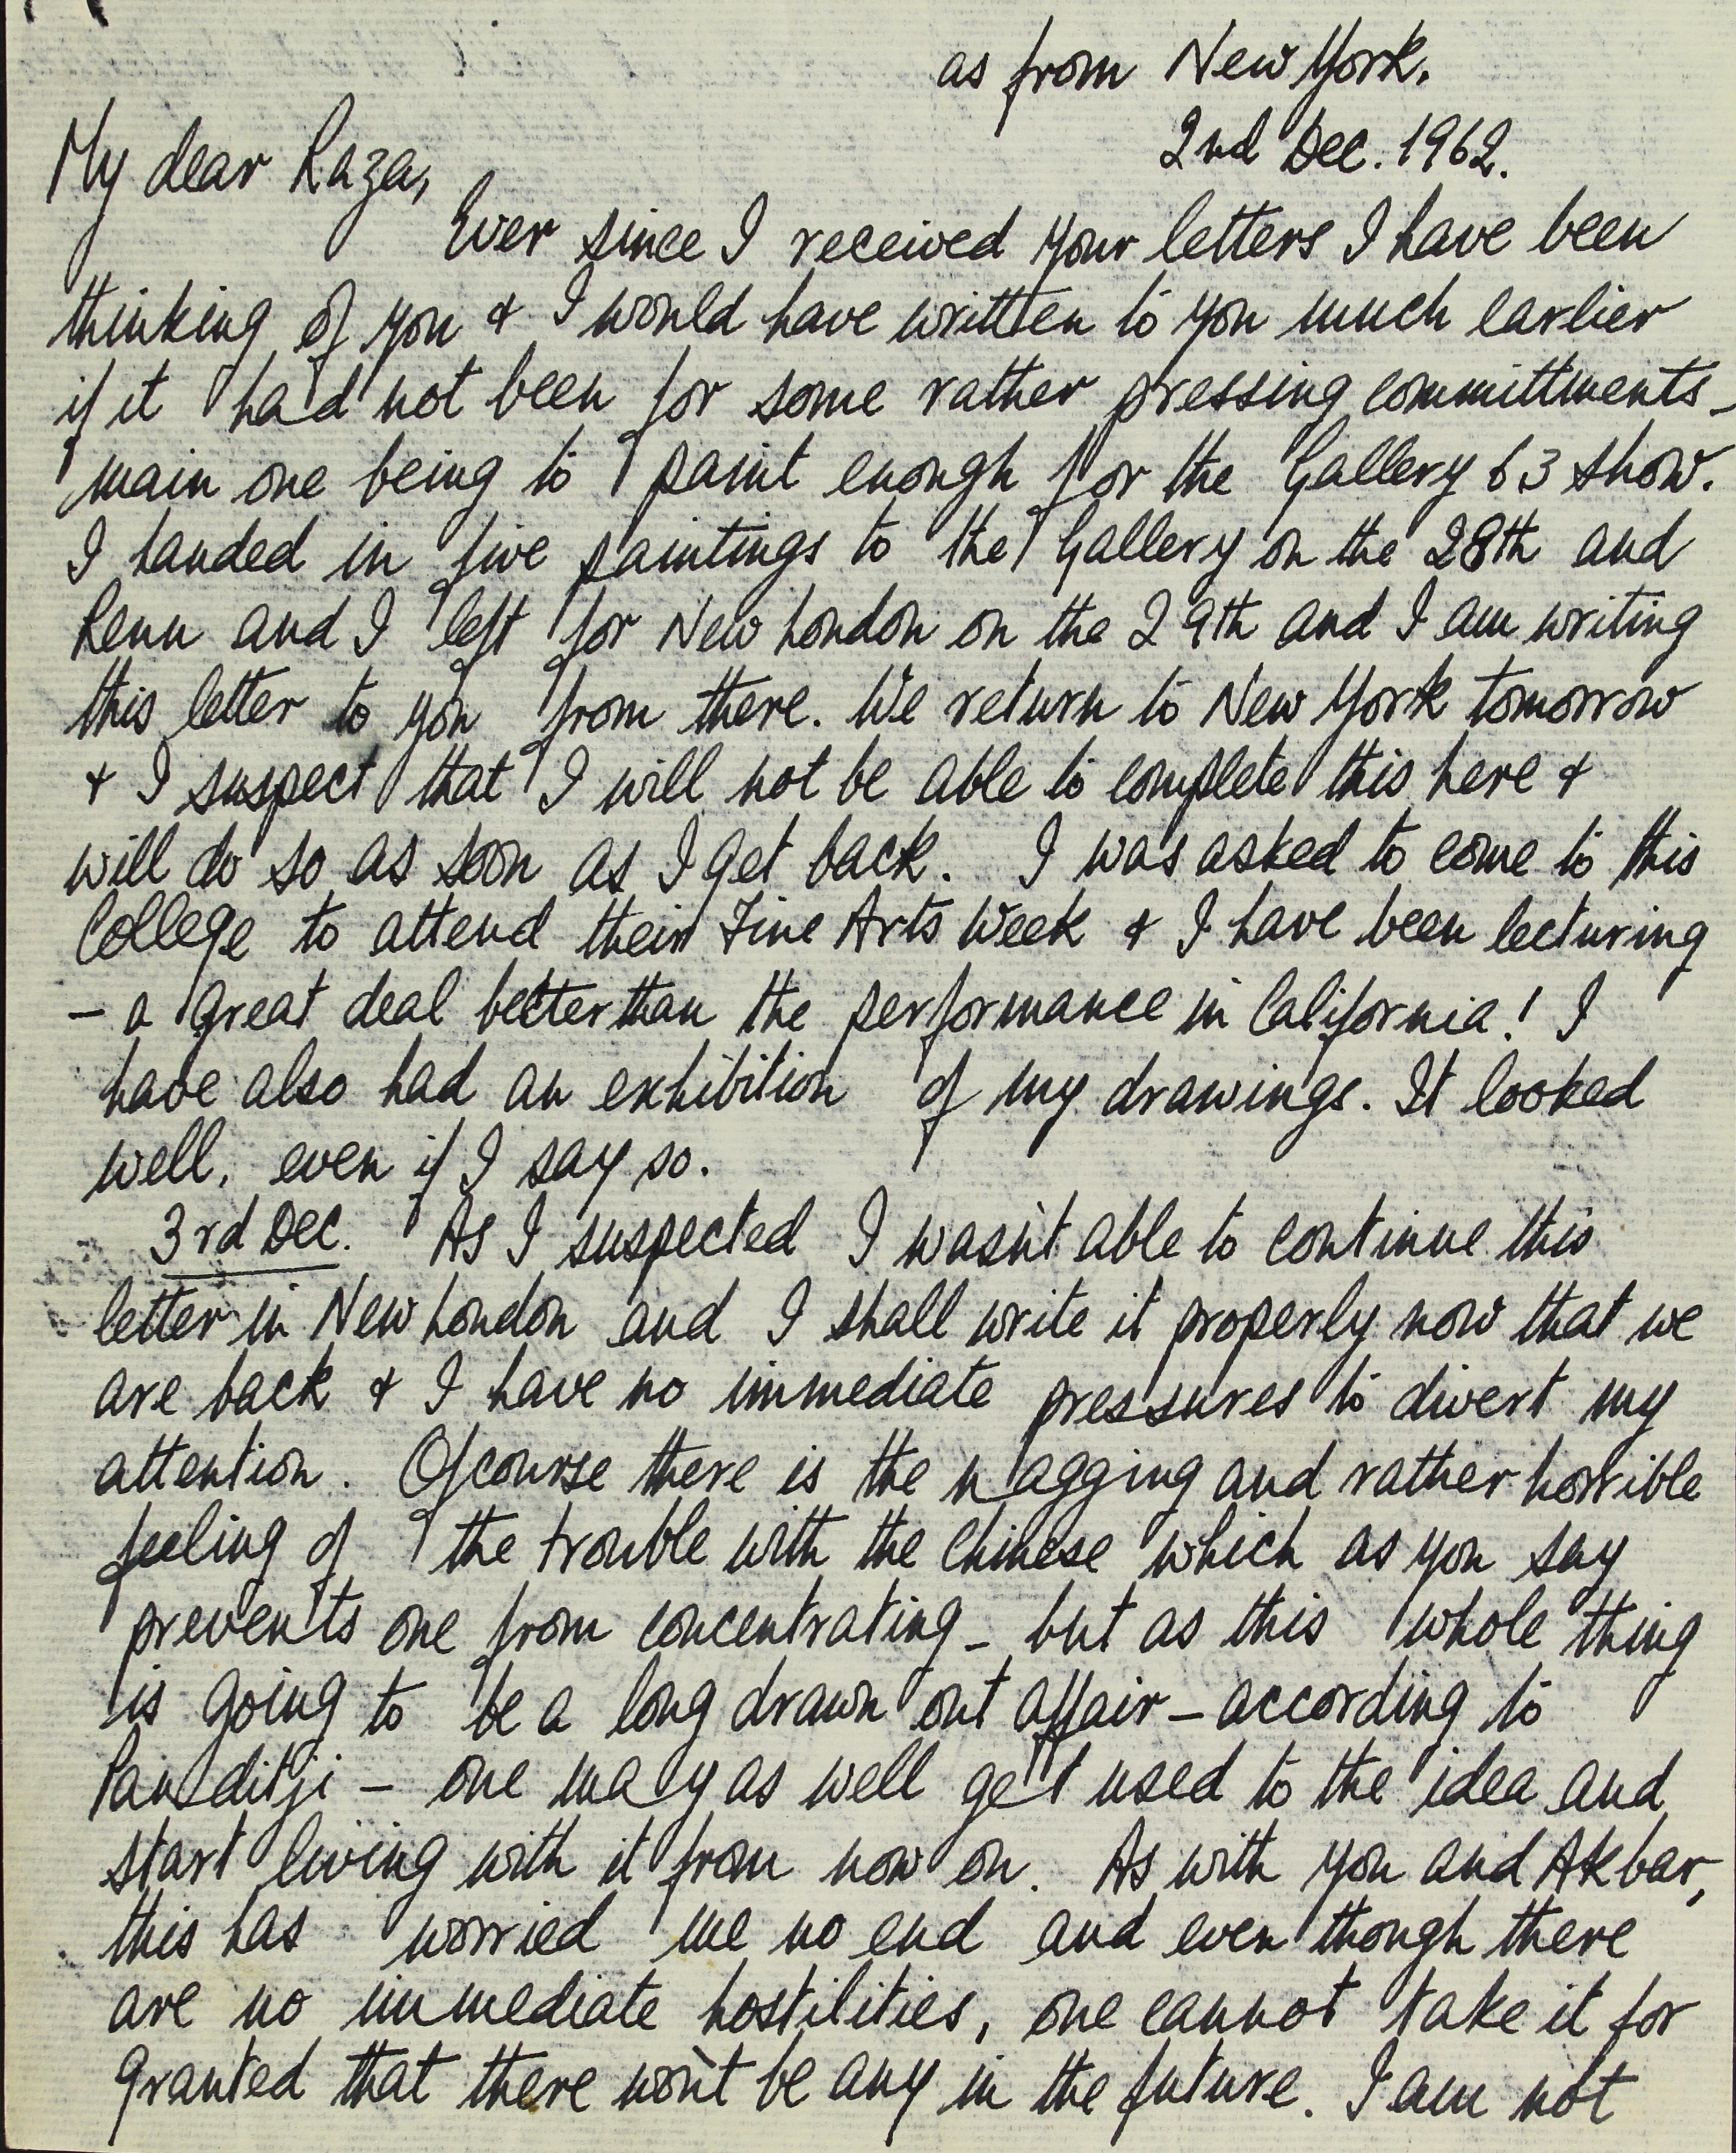 as from New York.
2nd Dec. 1962.
My dear Raza,
Ever since I received your letters I have been
thinking of you & I would have written to you much earlier
if it had not been for some rather pressing committments -
main one being to paint enough for the Gallery 63 show.
I handed in five paintings to the Gallery on the 28th and
Renu and I left for New London on the 29th and I am writing
this letter to you from there. We return to New York tomorrow
& I suspect that I will not be able to complete this here &
will do so as soon as I get back. I was asked to come to this
College to attend their Fine Arts Week & I have been lecturing
- a great deal better than the performance in California! I
have also had an exhibition of my drawings. It looked
well, even if I say so.
3rd Dec. As I suspected I wasn't able to continue this
letter in New London and I shall write it properly now that we
are back & I have no immediate pressures to divert my
attention. Ofcourse there is the nagging and rather horrible
feeling of the trouble with the Chinese which as you say
prevents one from concentrating - but as this whole thing
is going to be a long drawn out affair - according to
Panditji - one may as well get used to the idea and
start living with it from now on. As with you and Akbar,
this has worried me no end and even though there
are no immediate hostilities, one cannot take it for
granted that there won't be any in the future. I am not